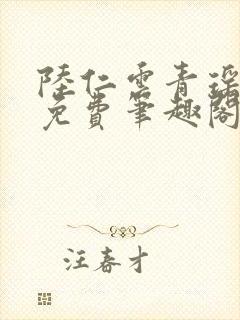 陸仁雲青瑶
免費筆趣閣
汪春才